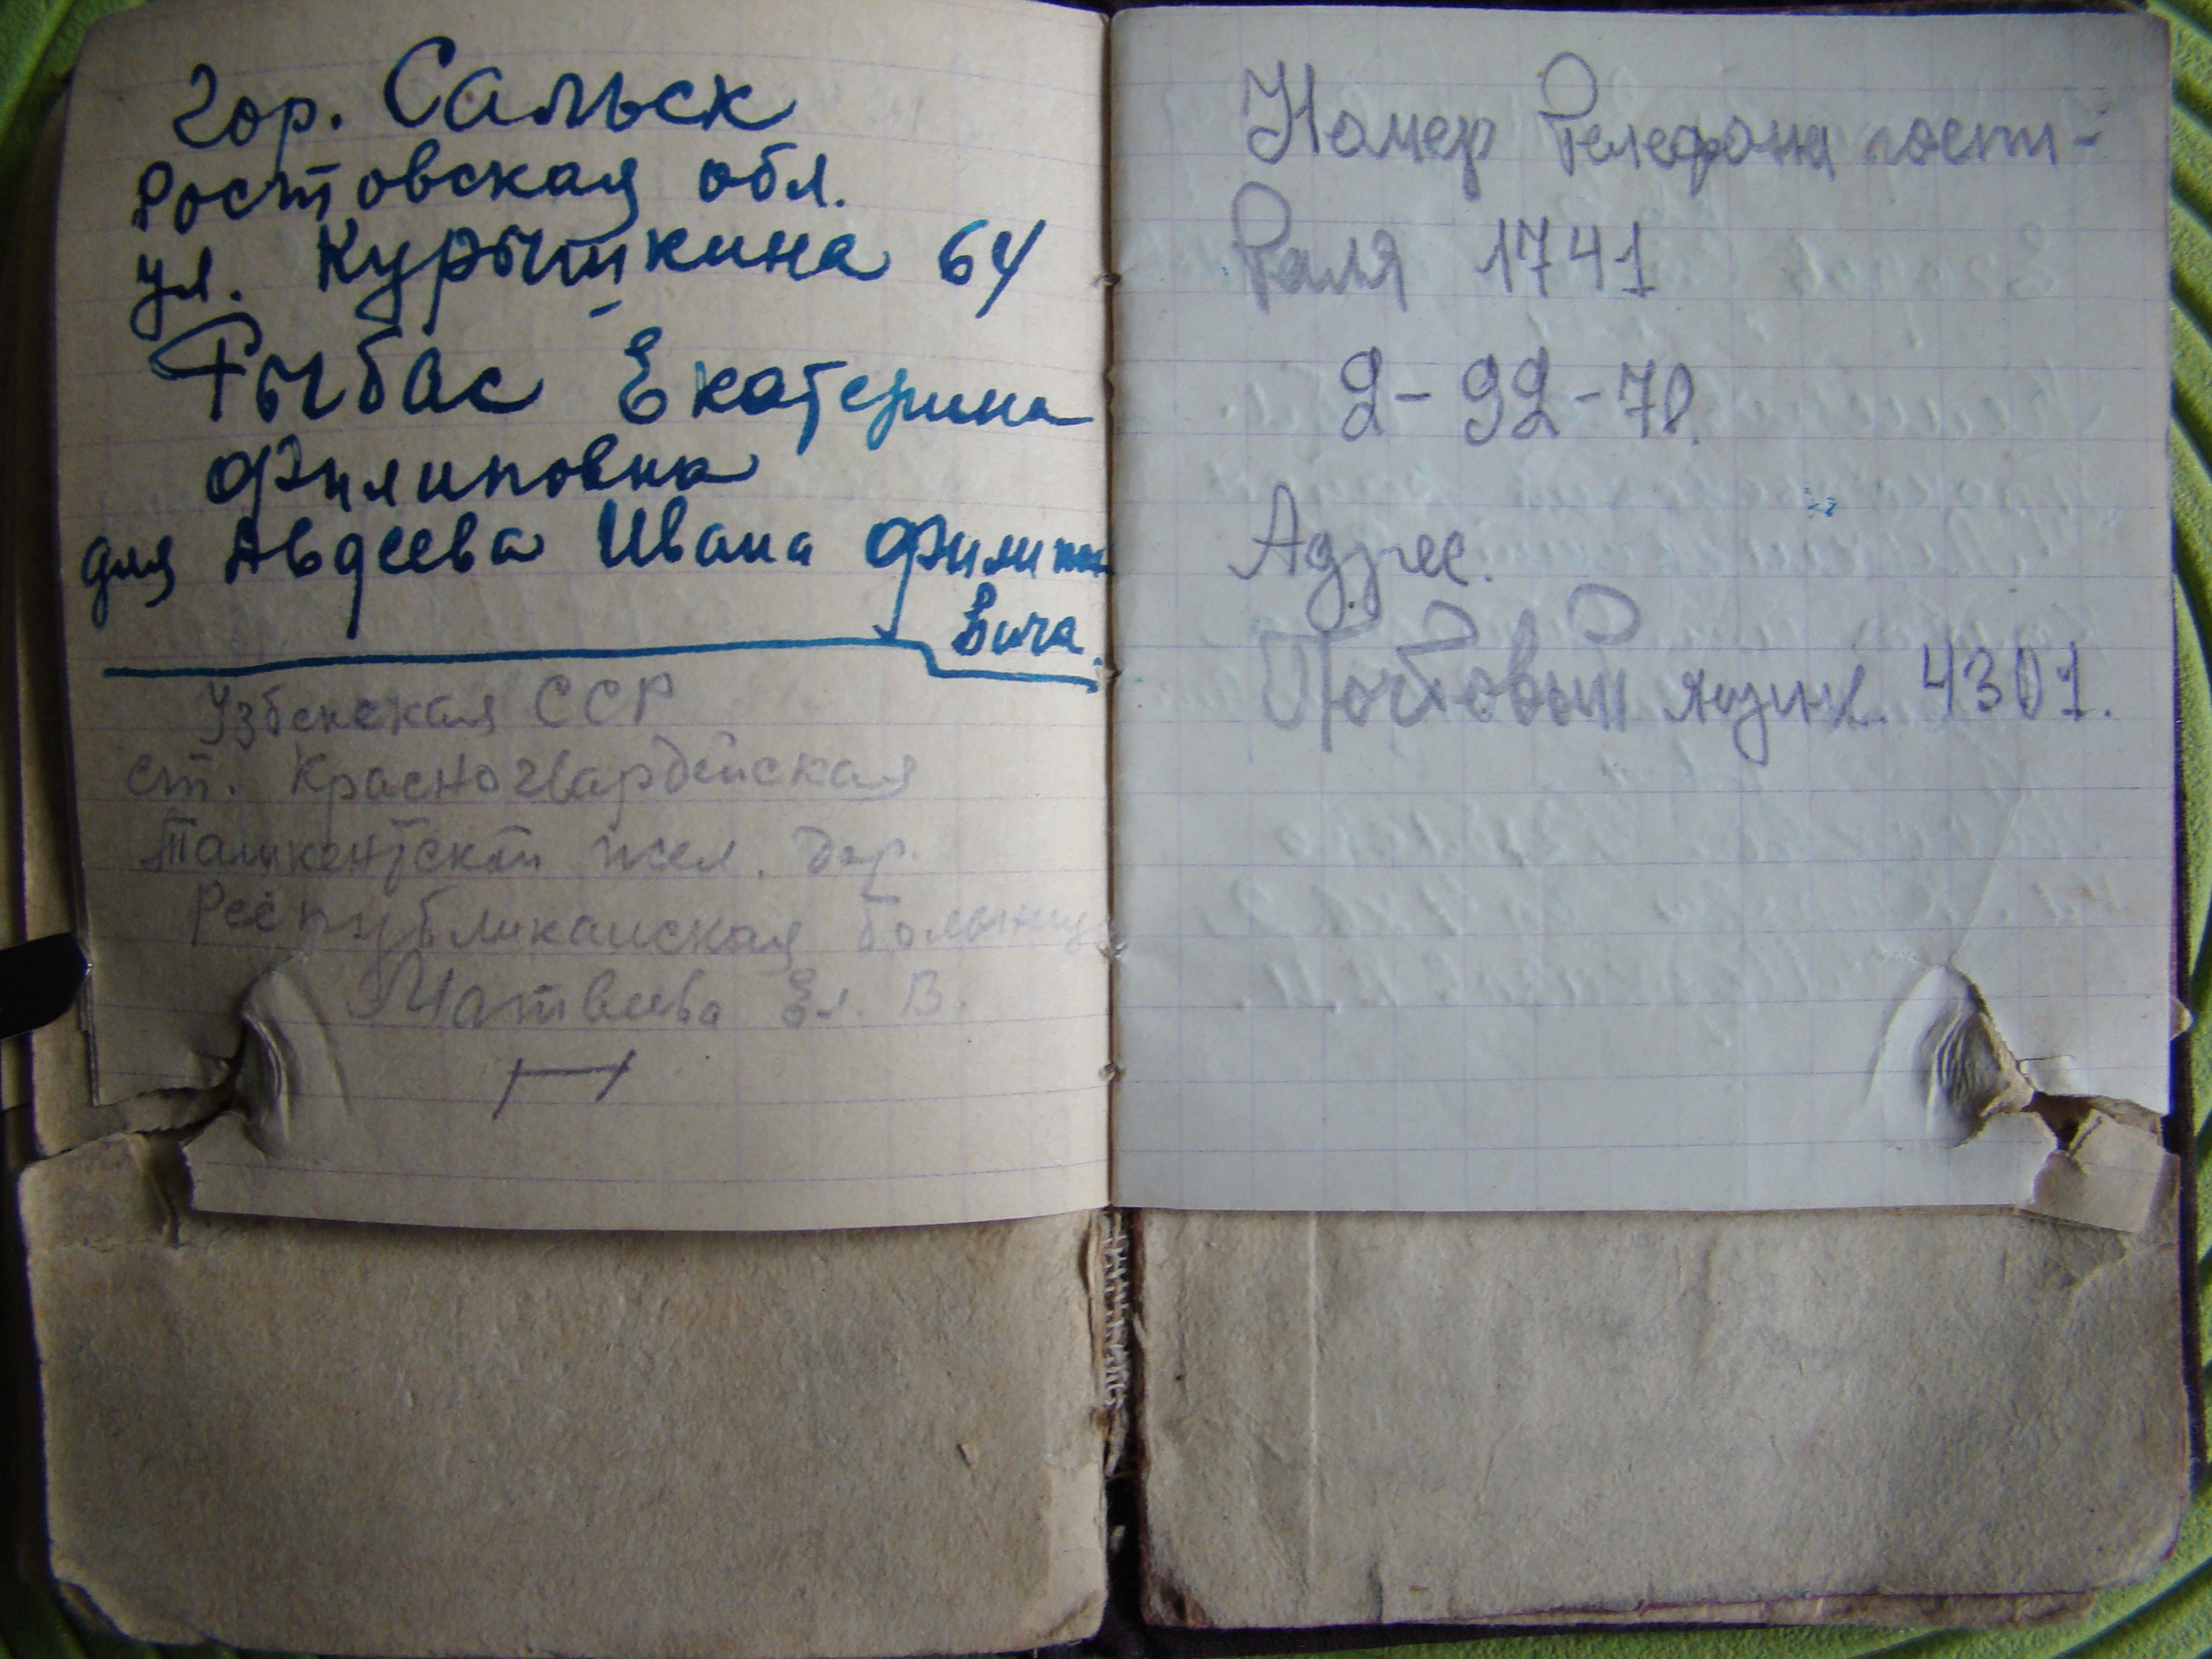 гор. Сальск
Ростовская обл.
ул. Курышкина 64
Рыбас Екатерина
Филиповна
для Авдеева Ивана Филипо
вича.
Узбекская ССР
ст. Красногвардейская
Ташкентской жел. дор.
Республиканская больниц
Матвеева Ел. В.
Номер телефона госпи-
таля 1741
2-92-70.
Адрес.
Почтовый ящик. 4301.